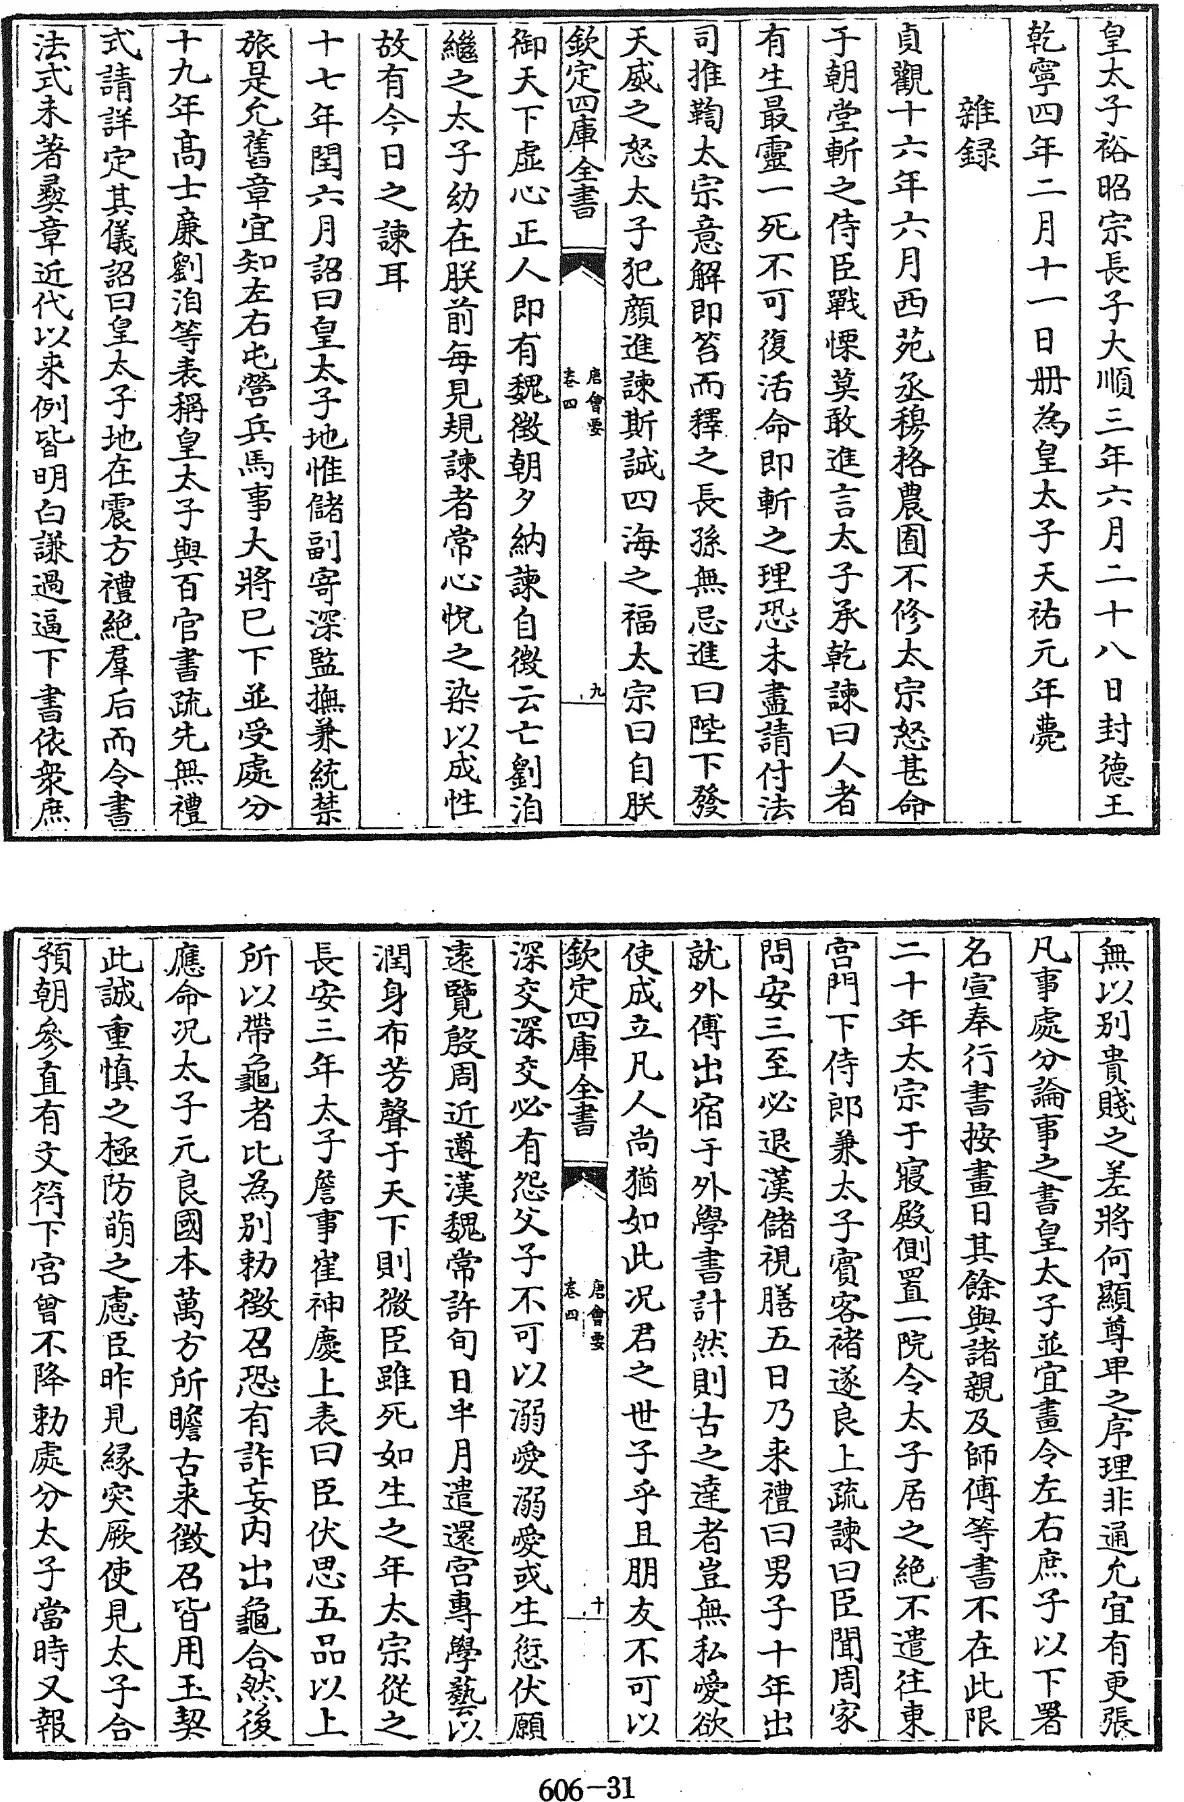 皇太子裕昭宗長子大順三年六月二十八日封德王
乾寧四年二月十一日册為皇太子天祐元年薨
雜録
貞觀十六年六月西苑丞穆格農囿不修太宗怒甚命
于朝堂斬之侍臣戰慄莫敢進言太子承乾諫曰人者
有生最靈一死不可復活命即斬之理恐未盡請付法
司推鞫太宗意解即笞而釋之長孫無忌進曰陛下發
天威之怒太子犯顔進諫斯誠四海之福太宗曰自朕
欽定四庫全書
唐會要
卷四
九
御天下虚心正人即有魏徵朝夕納諫自徵云亡劉洎
繼之太子幼在朕前每見規諫者常心悦之染以成性
故有今日之諫耳
十七年閏六月詔曰皇太子地惟儲副寄深監撫兼統禁
旅是允舊章宜知左右屯營兵馬事大將已下並受處分
十九年高士廉劉洎等表稱皇太子與百官書疏先無禮
式請詳定其儀詔曰皇太子地在震方禮絶羣后而令書
法式未著彛章近代以來例皆明白謙過逼下書依衆庶
無以别貴賤之差將何顯尊卑之序理非通允宜有更張
凡事處分論事之書皇太子並宜畫令左右庶子以下署
名宣奉行書按畫日其餘與諸親及師傅等書不在此限
二十年太宗于寢殿側置一院令太子居之絶不遣往東
宫門下侍郎兼太子賓客禇遂良上疏諫曰臣聞周家
問安三至必退漢儲視膳五日乃来禮曰男子十年出
就外傅出宿于外學書計然則古之達者豈無私愛欲
使成立凡人尚猶如此况君之世子乎且朋友不可以
欽定四庫全書
唐會要
卷四
十
深交深交必有怨父子不可以溺愛溺愛或生愆伏願
遠覽殷周近遵漢魏常許旬日半月遣還宫專學藝以
潤身布芳聲于天下則微臣雖死如生之年太宗從之
長安三年太子詹事崔神慶上表曰臣伏思五品以上
所以帶龜者比為别勅徴召恐有詐妄内出龜合然後
應命况太子元良國本萬方所瞻古来徴召皆用玉契
此誠重慎之極防萌之慮臣昨見縁突厥使見太子合
預朝參直有文符下宫曾不降勅處分太子當時又報
606-31